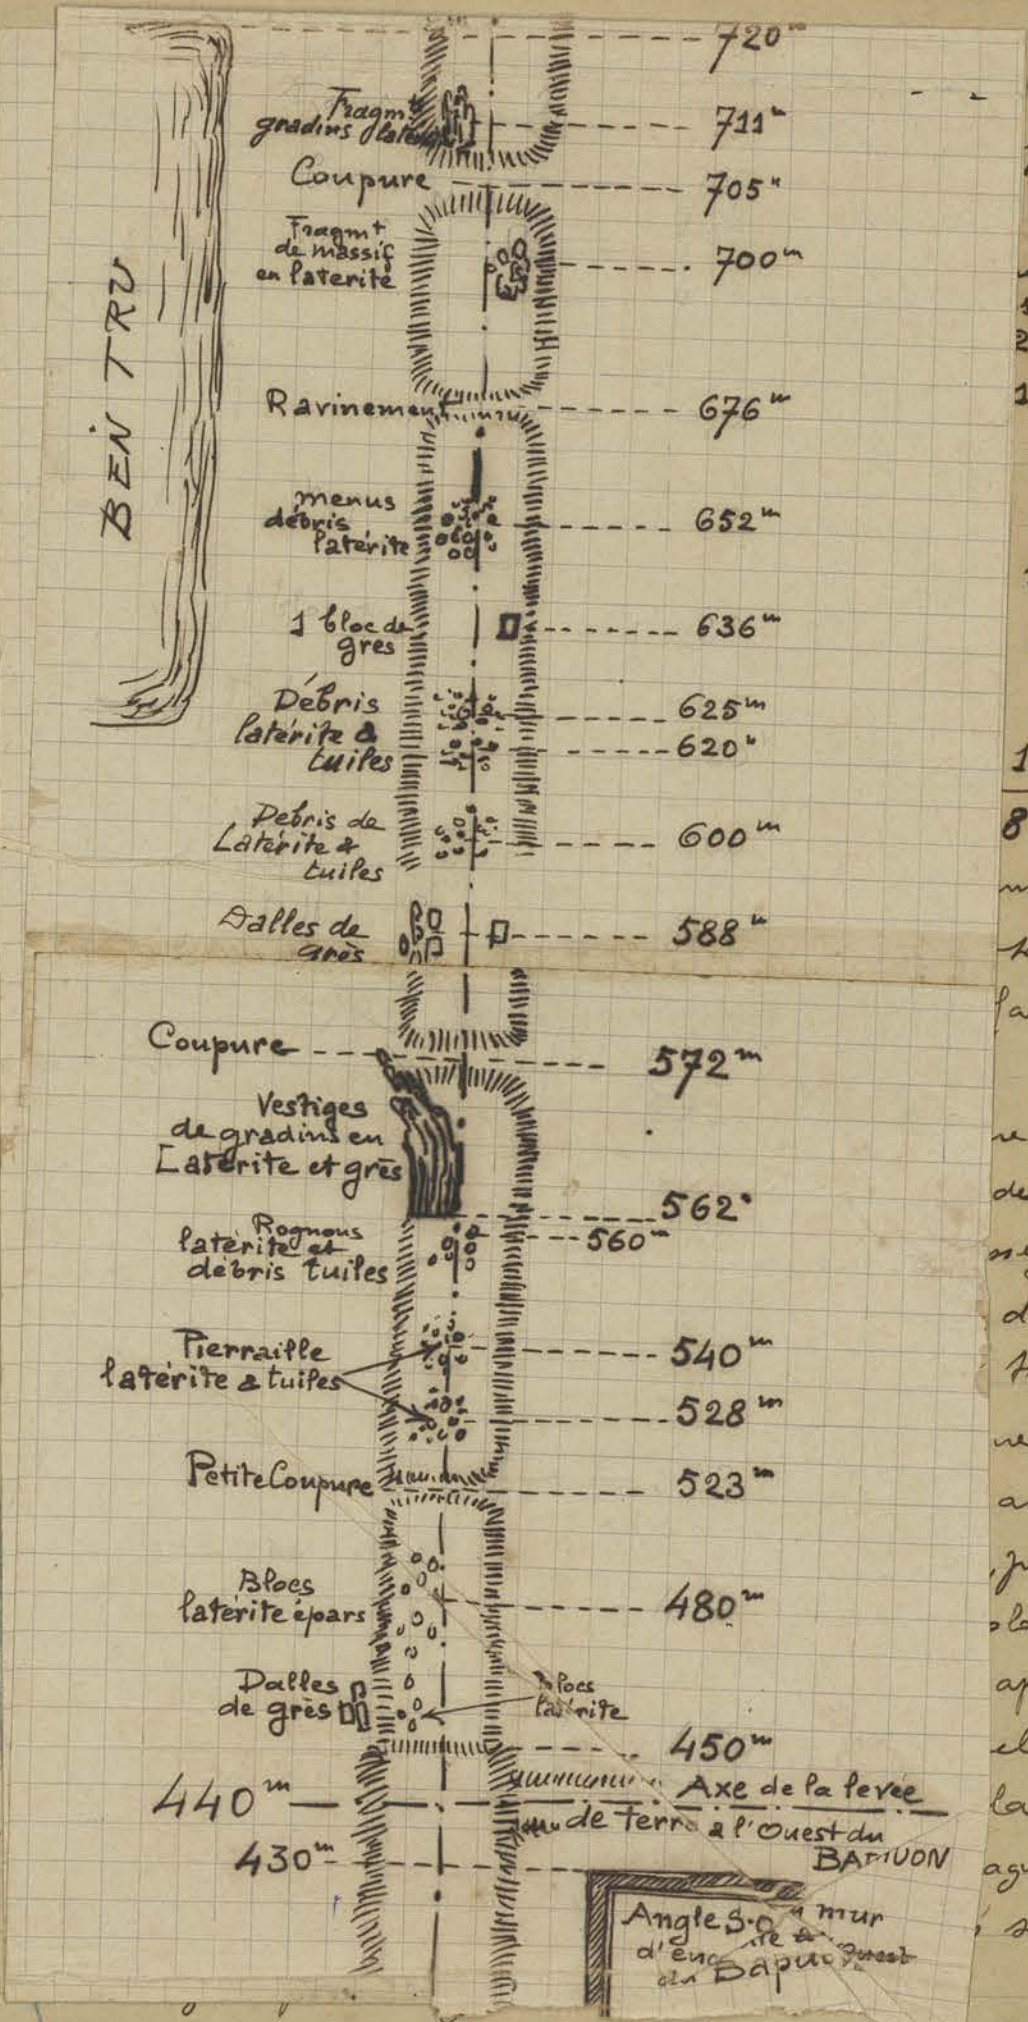 720m
Fragmts
gradins latérite
711m
Coupure
705m
Fragmt
de massif
en laterite
700m
BEN TRU
Ravinement
676m
menus
débris
latérite
652m
1 bloc de
grès
636m
Débris
latérite &
tuiles
625m
620m
Debris de
Latérite &
tuiles
600m
Dalles de
grès
588m
Coupure
572m
Vestiges
de gradins en
Latérite et grès
562m
Rognons
latérite et
débris tuiles
560m
Pierraille
latérite & tuiles
540m
528m
Petite Coupure
523m
Blocs
latérite épars
480m
Dalles
de grès
Blocs
latérite
450m
440m
Axe de la levée
de terre à l'Ouest du
BAPUON
430m
Angle S.O mur
d'enc
du Bapuon Ouest